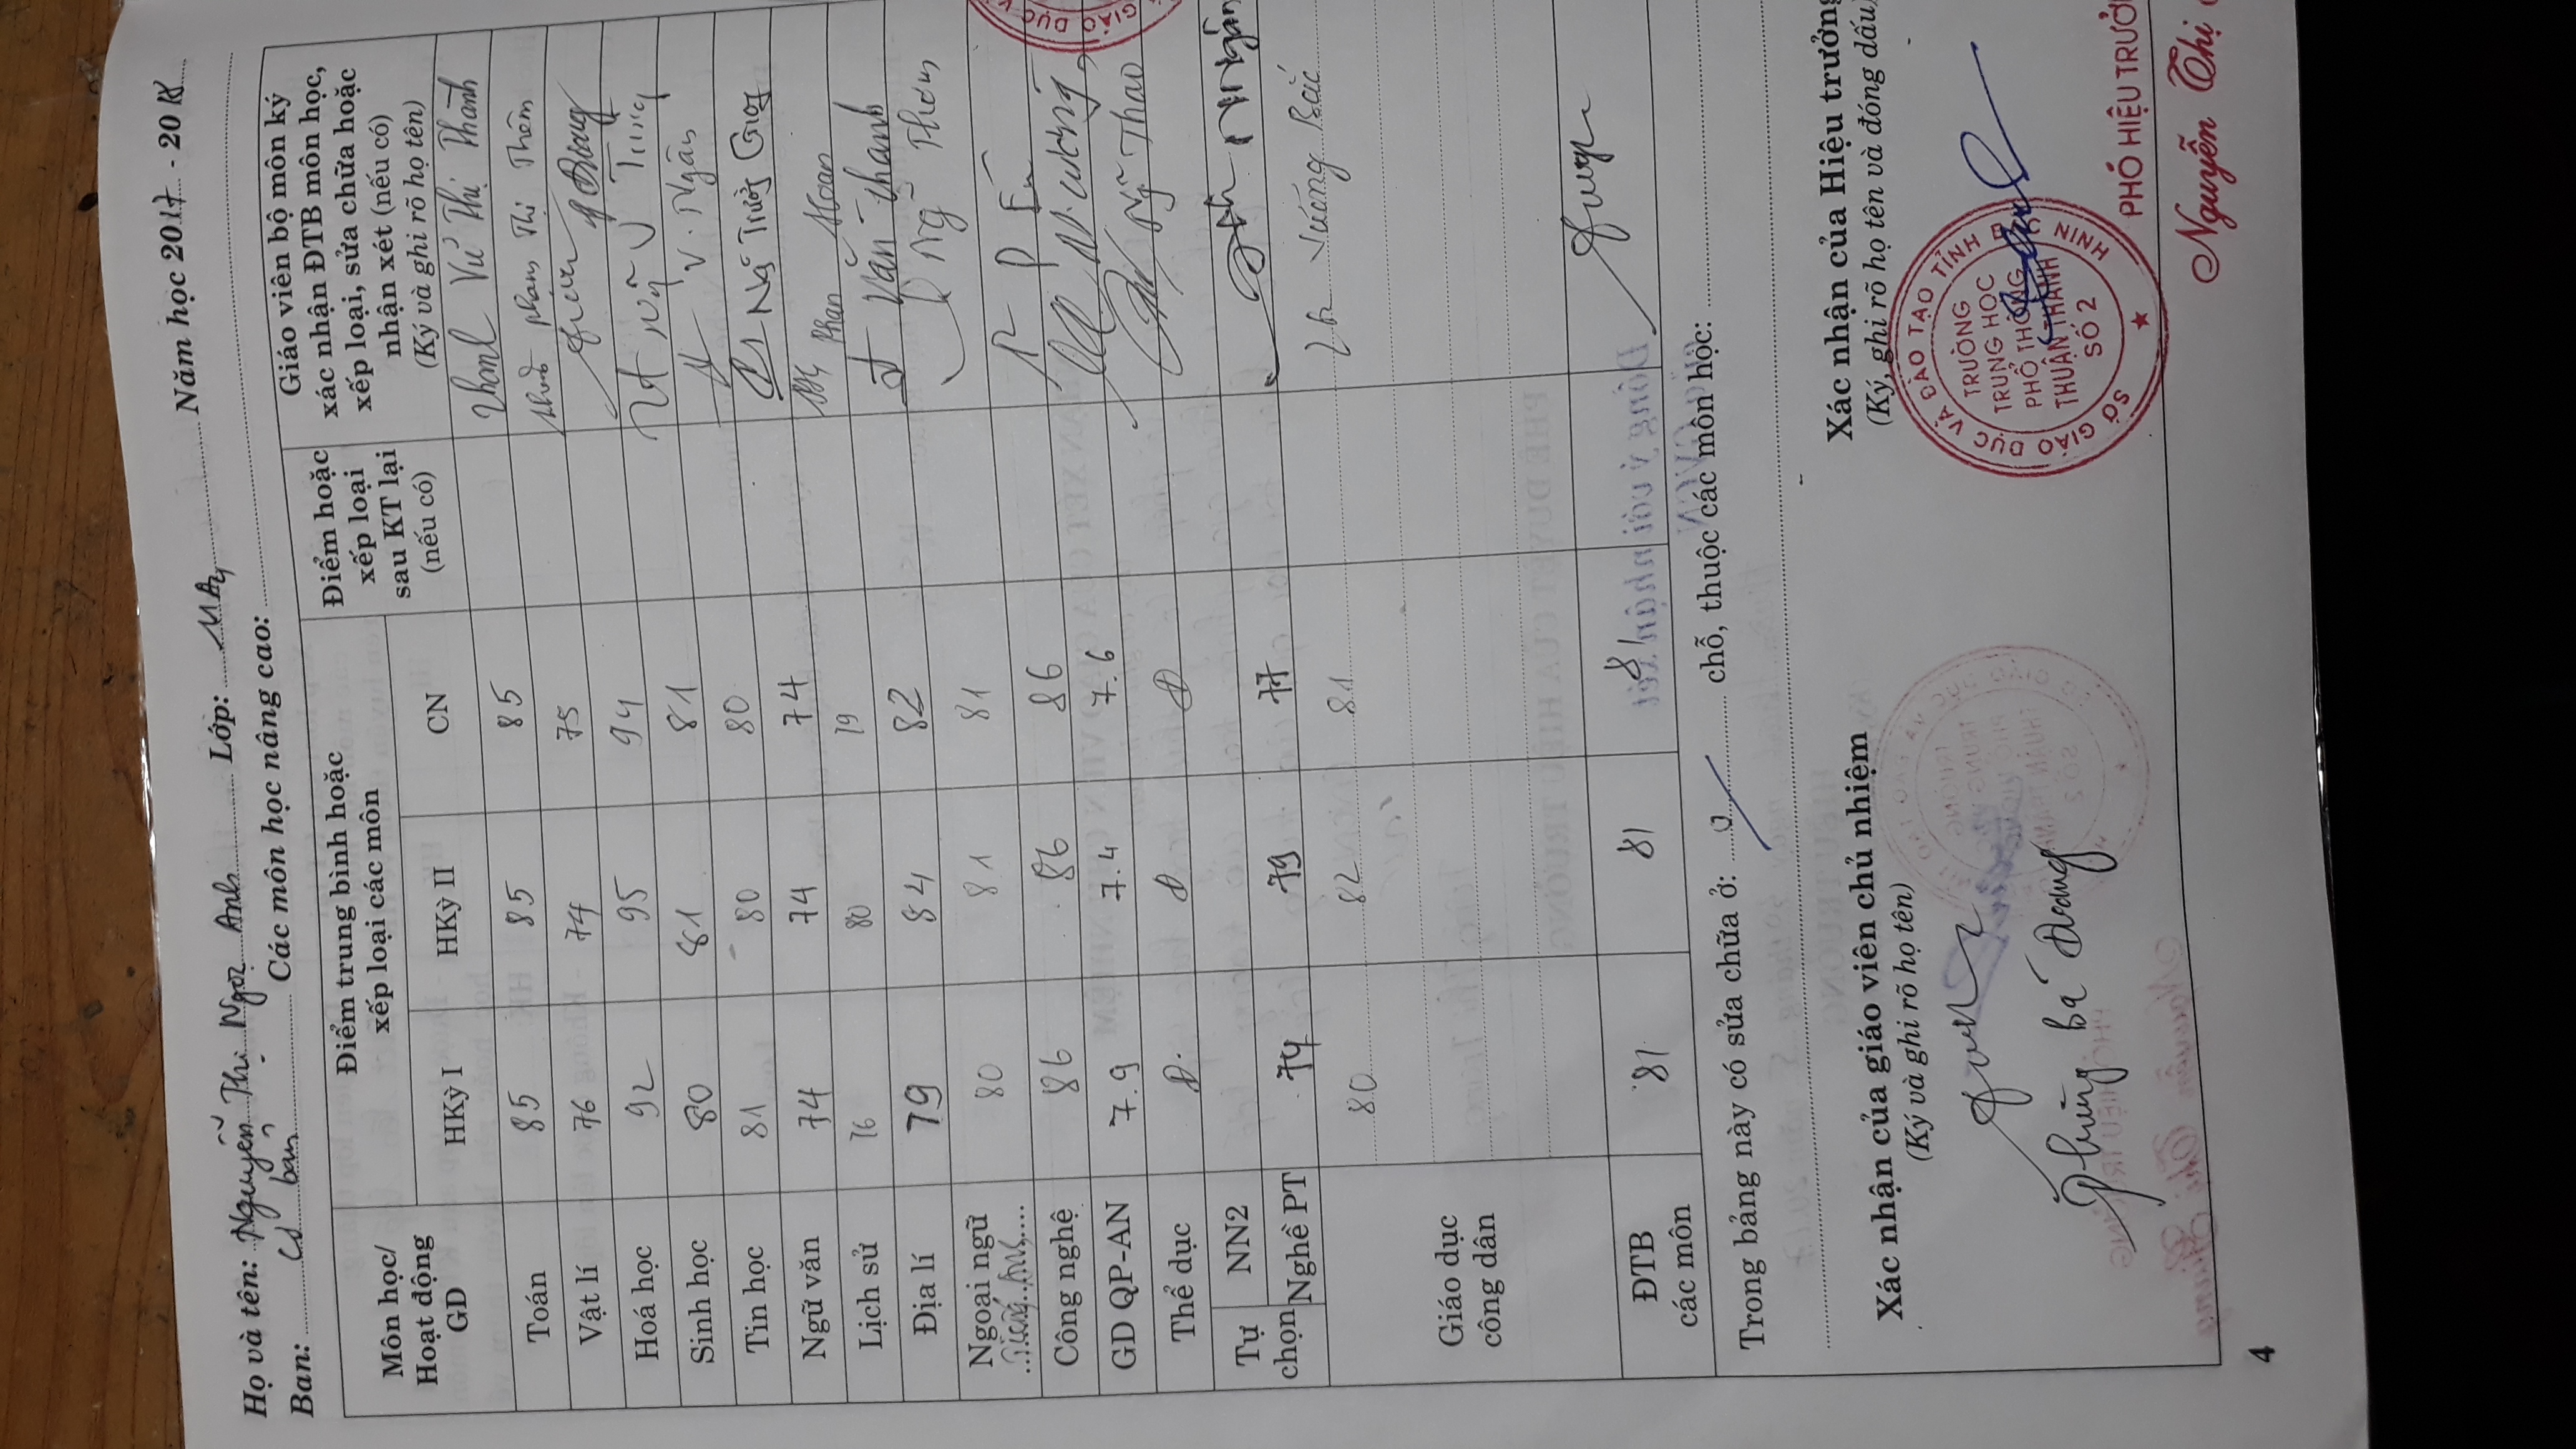 Họ và tên: Nguyễn Thị Ngọc Anh Lớp: 11A4 Năm học 2017 - 2018
Ban: Cơ bản Các môn học nâng cao:
Môn học/ Hoạt động GD Điểm trung bình hoặc xếp loại các môn Điểm hoặc xếp loại sau KT lại (nếu có) Giáo viên bộ môn ký xác nhận ĐTB môn học, xếp loại, sửa chữa hoặc nhận xét (nếu có) (Ký và ghi rõ họ tên)
HKỳ I HKỳ II CN
Toán 85 85 85 Vũ Thị Thanh
Vật lí 76 74 75 Phạm Thị Thêm
Hoá học 92 95 94 P Dương
Sinh học 80 81 81 Ng V Trung
Tin học 81 80 80 V. Ngân
Ngữ văn 74 74 74 Ng Trường Giang
Lịch sử 76 80 79 Phan Hoan
Địa lí 79 84 82 Văn Thanh
Ngoại ngữ 80 81 81 Ng Thơm
Tiếng Anh
Công nghệ 86 86 86 P Én
GD QP-AN 7.9 7.4 7.6 N. Cương
Thể dục Đ Đ Đ Ng Thao
Tự chọn NN2
Nghề PT 74 79 77 N Ngân
Giáo dục công dân 80 82 81 Vương Bắc
ĐTB các môn 81 81 81
Trong bảng này có sửa chữa ở: 0 chỗ, thuộc các môn học:
Xác nhận của giáo viên chủ nhiệm
(Ký và ghi rõ họ tên)
Phùng Bá Dương
Xác nhận của Hiệu trưởng
(Ký, ghi rõ họ tên và đóng dấu)
SỞ GIÁO DỤC VÀ ĐÀO TẠO TỈNH BẮC NINH
TRƯỜNG
TRUNG HỌC
PHỔ THÔNG
THUẬN THÀNH
SỐ 2
PHÓ HIỆU TRƯỞ
Nguyễn Thị
GIÁO DỤC V
4